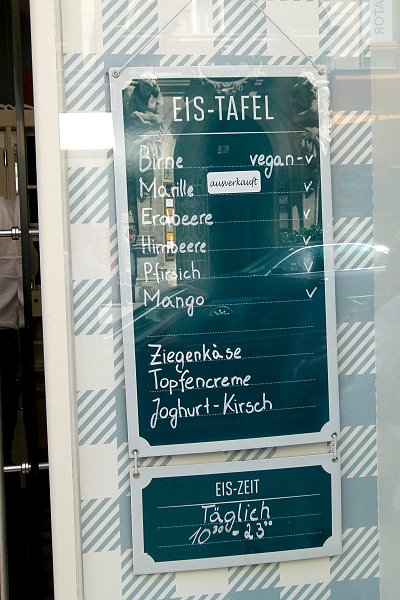 EIS-TAFEL
Birne vegan-✓
Marille ausverkauft ✓
Erdbeere ✓
Himbeere ✓
Pfirsich ✓
Mango ✓
Ziegenkäse
Topfencreme
Joghurt-Kirsch
EIS-ZEIT
Täglich
10³⁰-23°°